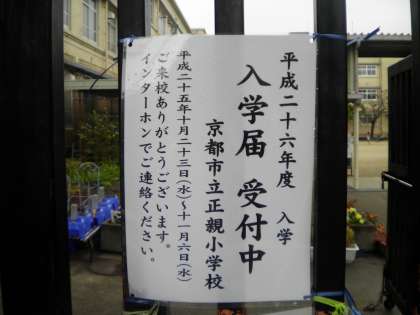 平成二十六年度 入学
入学届 受付中
京都市立正親小学校
平成二十五年十月二十三日(水)~十一月六日(水)
ご来校ありがとうございます。
インターホンでご連絡ください。